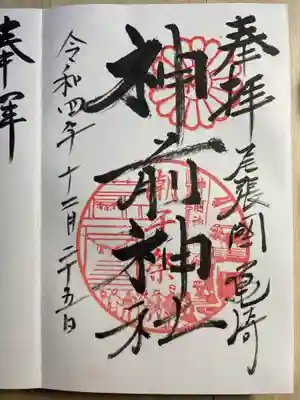 奉拝 尾張国 亀崎
神前神社
令和四年 十二月二十五日
奉拝